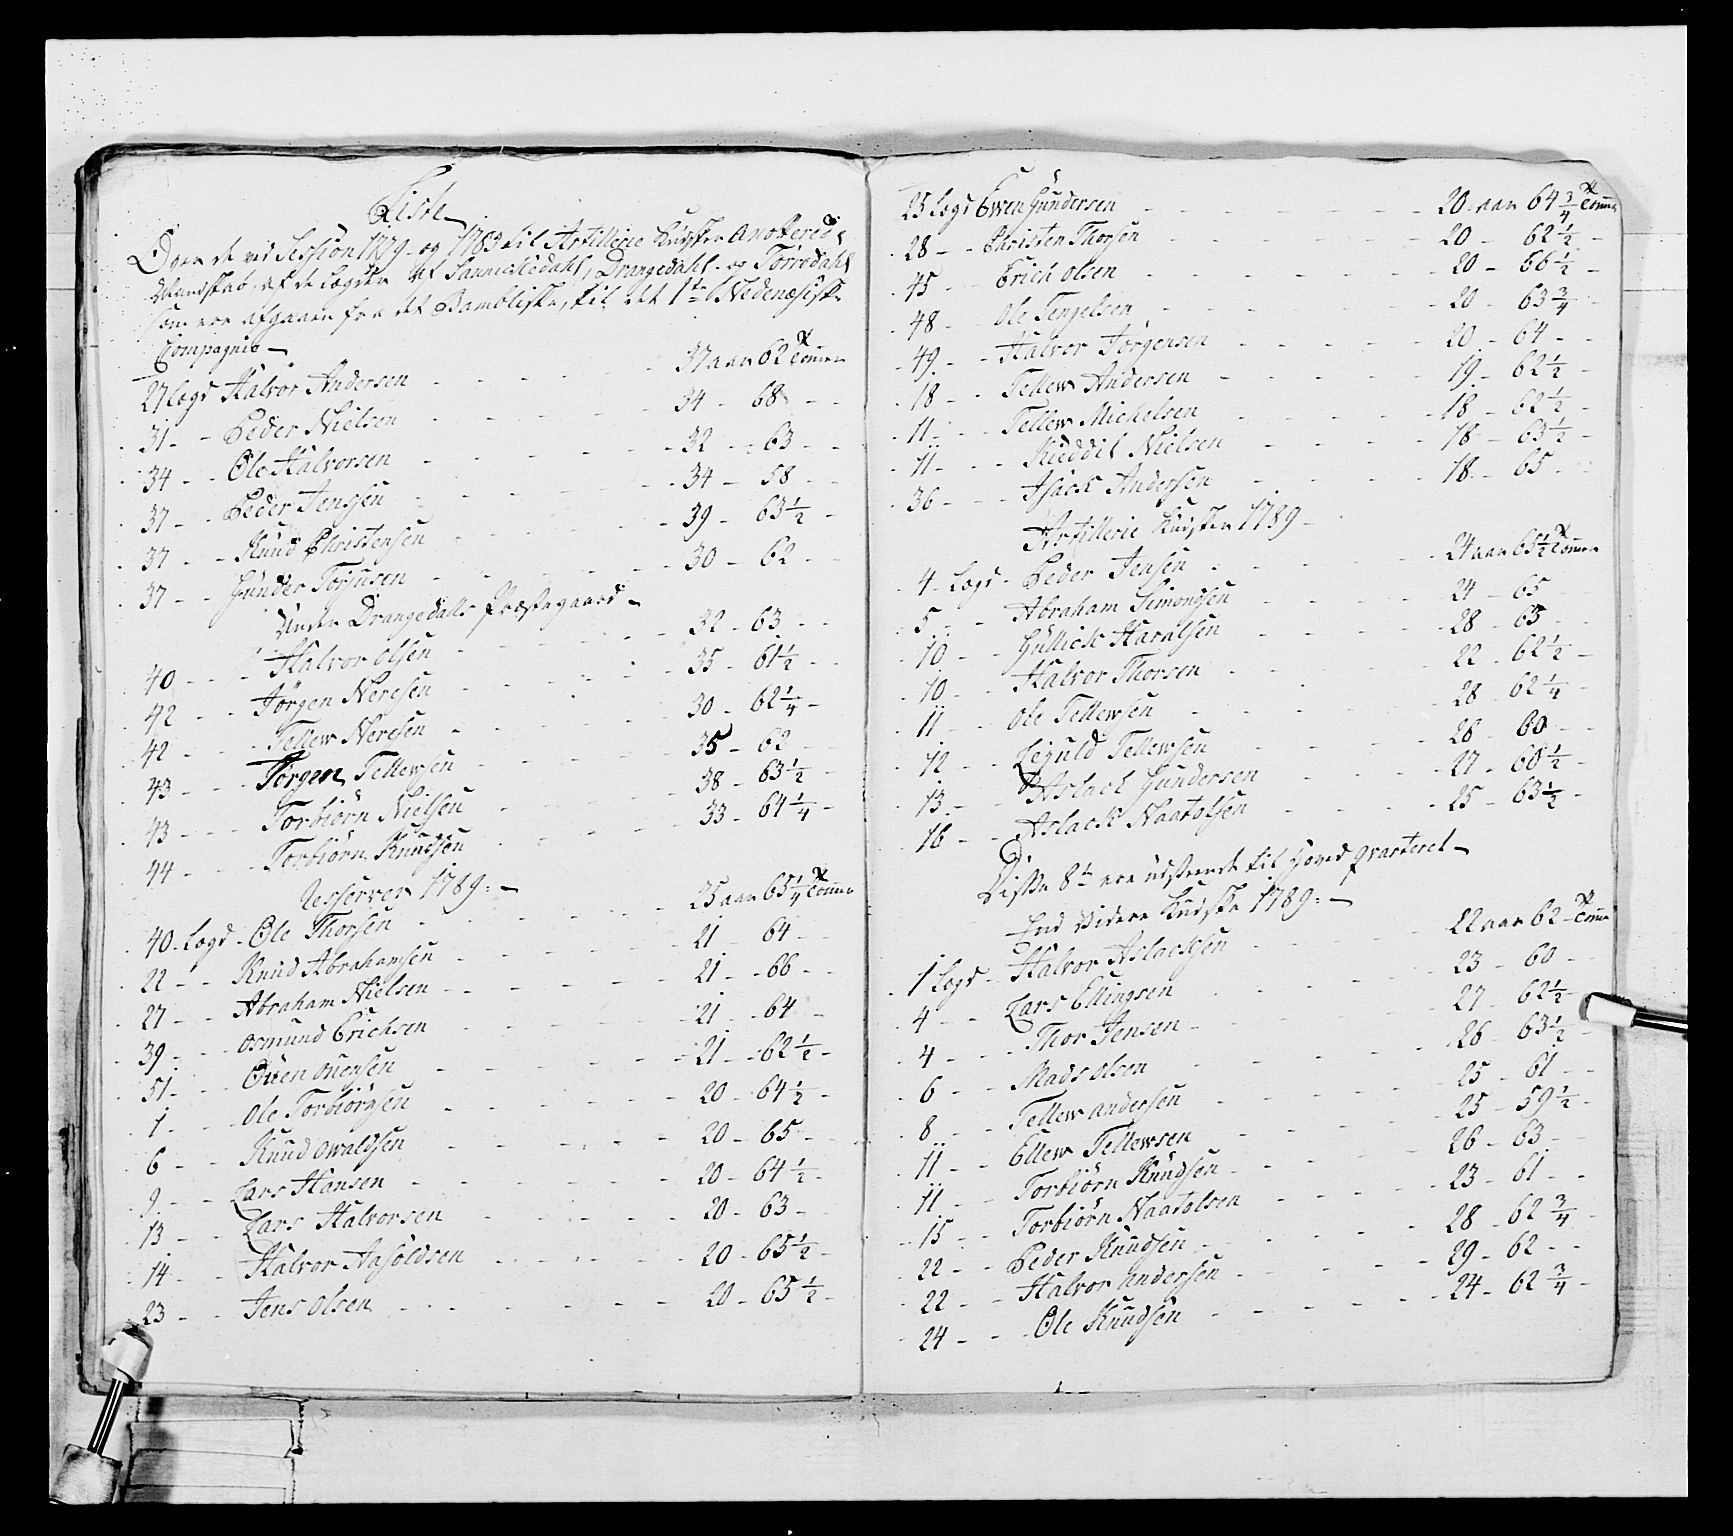 Liste
Over de ved Session 1779 og 1783 til Artillerie Kudske Anoterede
Mandskab, af de Lægder af Sannickedahl, Drangedahl og Törredahl
som ere afgaaen fra det Bambliske, til det 1ste Nedenæsiske
Compagnie —
27 Lægd Halvor Andersen - - - 37 aar 62 Tommer
31 - - Peder Nielsen - - - 34 - 68 - -
34 - - Ole Halvorsen - - - 32 - 63 - -
37 - - Peder Jenssen - - - 34 - 58 - -
37 - - Knud Christensen - - - 39 - 63 1/2 -
37 - - Gunder Torjusen - - - 30 - 62 - -
Under Drangedalls Præstegaard -
40 - - Halvor Olsen - - - 32 - 63 - -
42 - - Jörgen Neresen - - - 35 - 61 1/2 - -
42 - - Tellew Neresen - - - 30 - 62 1/4 -
43 - - Jörgen Tellewsen - - - 35 - 62 - -
43 - - Torbiörn Nielsen - - - 38 - 63 1/2 -
44 - - Torbiörn Knudsen - - - 33 - 64 1/4 -
Resserver 1789: —
40 Lægd - Ole Thorsen - - - 25 aar 65 1/4 Tommer
22 - - Knud Abrahamsen - - - 21 - 64 - -
27 - - Abraham Nielsen - - - 21 - 66 - -
39 - - Osmund Erichsen - - - 21 - 64 - -
51 - - Ouen Ouensen - - - 21 - 62 1/2 -
1 - - Ole Torbiörnsen - - - 20 - 64 1/2 -
6 - - Knud Owaldsen - - - 20 - 65 -
9 - - Lars Hansen - - - 20 - 64 1/2 -
13 - - Lars Halvorsen - - - 20 - 63 -
14 - - Halvor Aasöldsen - - - 20 - 65 1/2 -
23 - - Jens Olsen - - - 20 - 65 1/2 -
25 Lægd Ewen Gundersen - - - 20 aar 64 3/4 Tommer
28 - - Christen Thorsen - - - 20 - 62 1/2 -
45 - Erich Olsen - - - 20 - 66 1/2 -
48 - Ole Tengelsen - - - 20 - 63 3/4
49 - - Halvor Jörgensen - - - 20 - 64 - -
18 - - Tellew Andersen - - - 19 - 62 1/2 -
11 - - Tellew Michelsen - - - 18 - 62 1/2 -
11 - - Kieddil Nielsen - - - 18 - 63 1/2 -
36 - - Isack Andersen - - - 18 - 65 -
Artillerie Kudsker 1789 -
4 - Lægd - Peder Jensen - - - 24 aar 65 1/2 Tommer
5 - - Abraham Simonsen - - - 24 - 65
10 - - Gullick Haralsen - - - 28 - 65 -
10 - - Halvor Thorsen - - - 22 - 62 1/2 -
11 - - Ole Tellewsen - - - 28 - 62 1/4 -
12 - - Leguld Tellewsen - - - 28 - 60 -
13 - - Aslack Gundersen - - - 27 - 60 1/2 -
16 - - Aslack Naatolsen - - - 25 - 63 1/2 -
Disse 8te ere udstrente til Hoved Qvarteret —
End Videre Kudske 1789: —
1 Lægd - Halvor Aslacksen - - - 22 aar 62 - Tommer
4 - - Lars Ellingsen - - - 23 - 60 - -
4 - - Thor Jensen - - - 27 - 62 1/2 -
6 - - Mads Olsen - - - 26 - 63 1/2 -
8 - - Tellew Andersen - - - 25 - 61 - -
11 - - Ellew Tellewsen - - - 25 - 59 1/2 -
11 - - Torbiörn Knudsen - - - 26 - 63 -
15 - - Torbiörn Naatolsen - - - 23 - 61 - -
22 - - Peder Knudsen - - - 28 - 62 3/4 -
22 - - Halvor Andersen - - - 29 - 62 - -
24 - - Ole Knudsen - - - 24 - 62 3/4 -